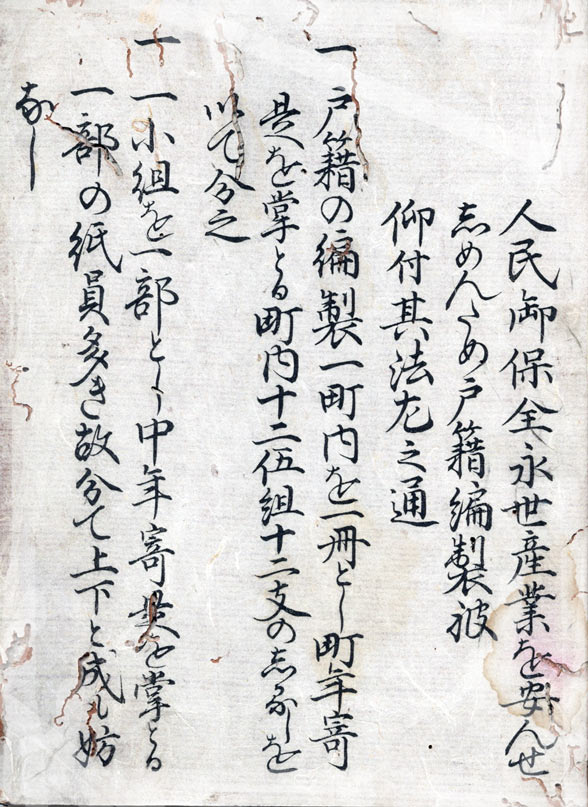 人民御保全永世産業を安んせ
志めんため戸籍編製被
仰付其法左之通
一 戸籍の編製一町内を一冊とし町年寄
是を掌とる町内十二伍組十二支の志るしを
以て分之
一 一小組を一部とし中年寄是を掌とる
一部の紙員多き故分て上下と成も妨
なし